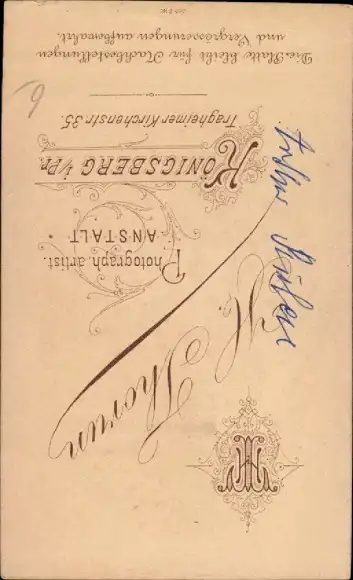 HT
H. Thorun
Photograph. artist.
ANSTALT
KÖNIGSBERG i/Pr.
Tragheimer Kirchenstr. 35.
Die Platte bleibt für Nachbestellungen
und Vergrösserungen aufbewahrt.
6